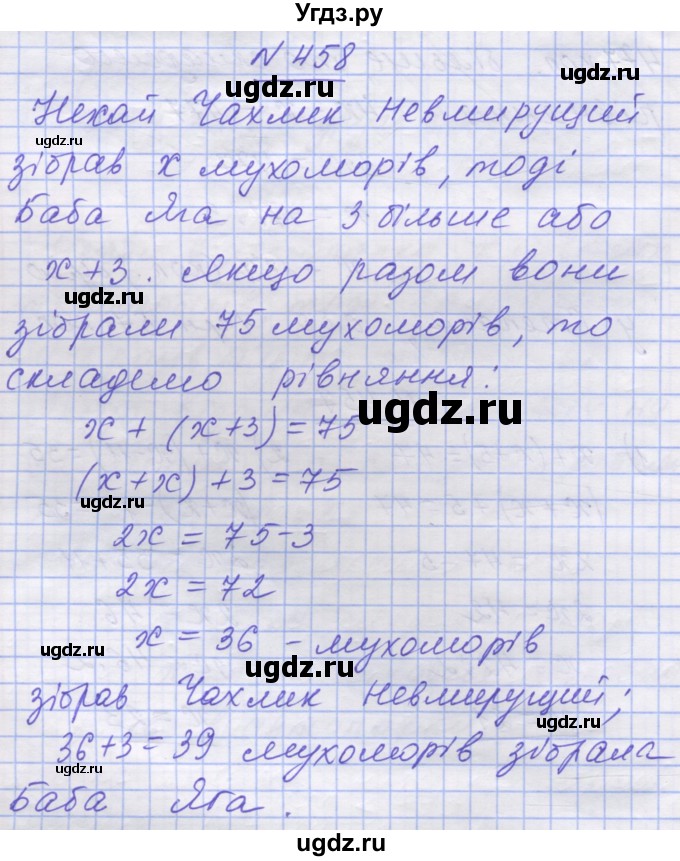 Угдз.ру
N 458
ugdz.ru
Нехай Чахлик Невмирущий
ugdz.ru ugdz.ru
зібрав x мухоморів, тоді
Баба Яга на 3 більше або
x+3. Якщо разом вони
ugdz.ru ugdz.ru
зібрали 75 мухоморів, то
складемо рівняння:
ugdz.ru
x + (x+3) = 75
(x+x) + 3 = 75
ugdz.ru
2x = 75-3
2x = 72
x = 36 - мухоморів
ugdz.ru ugdz.ru
зібрав Чахлик Невмирущий;
ugdz.ru
36+3=39 мухоморів зібрала
ugdz.ru
Баба Яга.
ugdz.ru